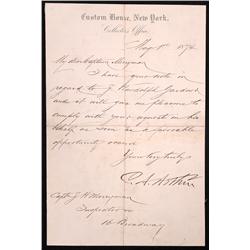 Custom House, New York,
Collector's Office,
May 1st 1874
My dear Captain Merryman
I have your note in
regard to J. Randolph Gardner
and it will give me pleasure to
comply with your request in his
behalf as soon as a favorable
opportunity occurs
Yours very truly
C. A. Arthur
Capt. J H Merryman
Inspector
16 Broadway